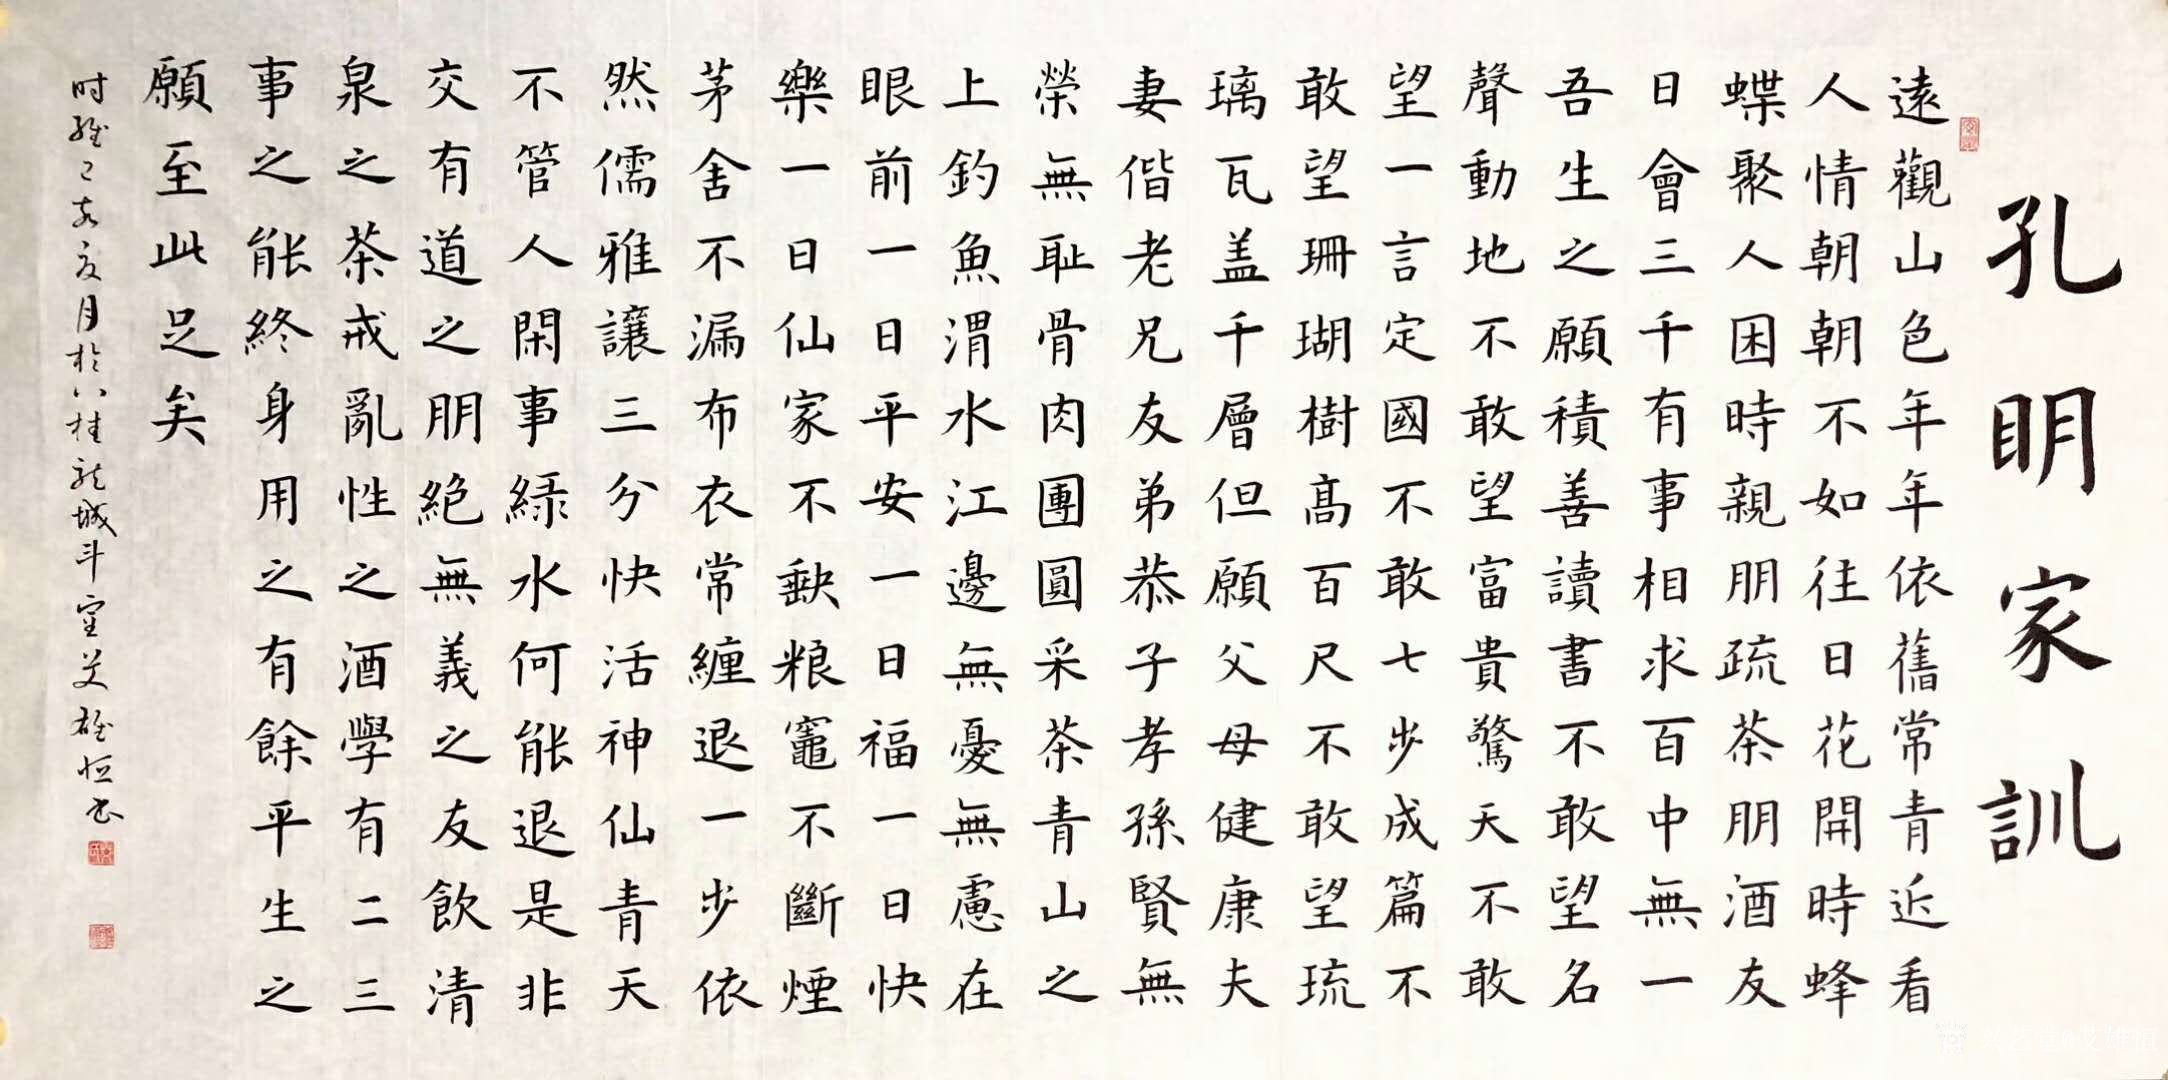 孔明家訓
遠觀山色年年依舊常青近看
人情朝朝不如往日花開時蜂
蝶聚人困時親朋疏茶朋酒友
日會三千有事相求百中無一
吾生之願積善讀書不敢望名
聲動地不敢望富貴驚天不敢
望一言定國不敢七步成篇不
敢望珊瑚樹高百尺不敢望琉
璃瓦盖千層但願父母健康夫
妻偕老兄友弟恭子孝孫賢無
榮無恥骨肉團圓采茶青山之
上釣魚渭水江邊無憂無慮在
眼前一日平安一日福一日快
樂一日仙家不缺粮竈不斷煙
茅舍不漏布衣常纏退一步依
然儒雅讓三分快活神仙青天
不管人閑事綠水何能退是非
交有道之朋絕無義之友飲清
泉之茶戒亂性之酒學有二三
事之能終身用之有餘平生之
願至此足矣
时維己亥夏月於八桂龙城斗室艾雄恒书